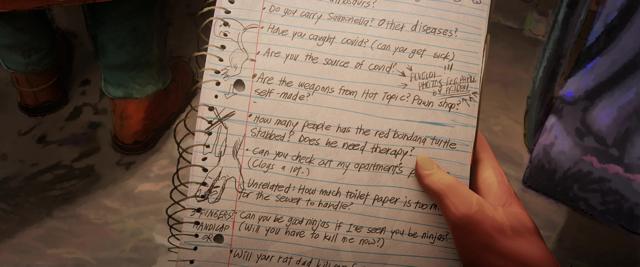 dinosaurs?
• Do you carry Salmonella? Other diseases?
• Have you caught covid? (can you get sick)
• Are you the source of covid?
• Are the weapons from Hot Topic? Pawn shop?
self-made?
• How many people has the red bandana turtle
stabbed? Does he need therapy?
• Can you check out my apartment's
(Clogs a lot.)
Unrelated: How much toilet paper is too
for the sewer to handle?
3 FINGERS
HANDICAP
OR
Can you be good ninjas if I've seen you be ninjas?
(Will you have to kill me now?)
• Will your rat dad